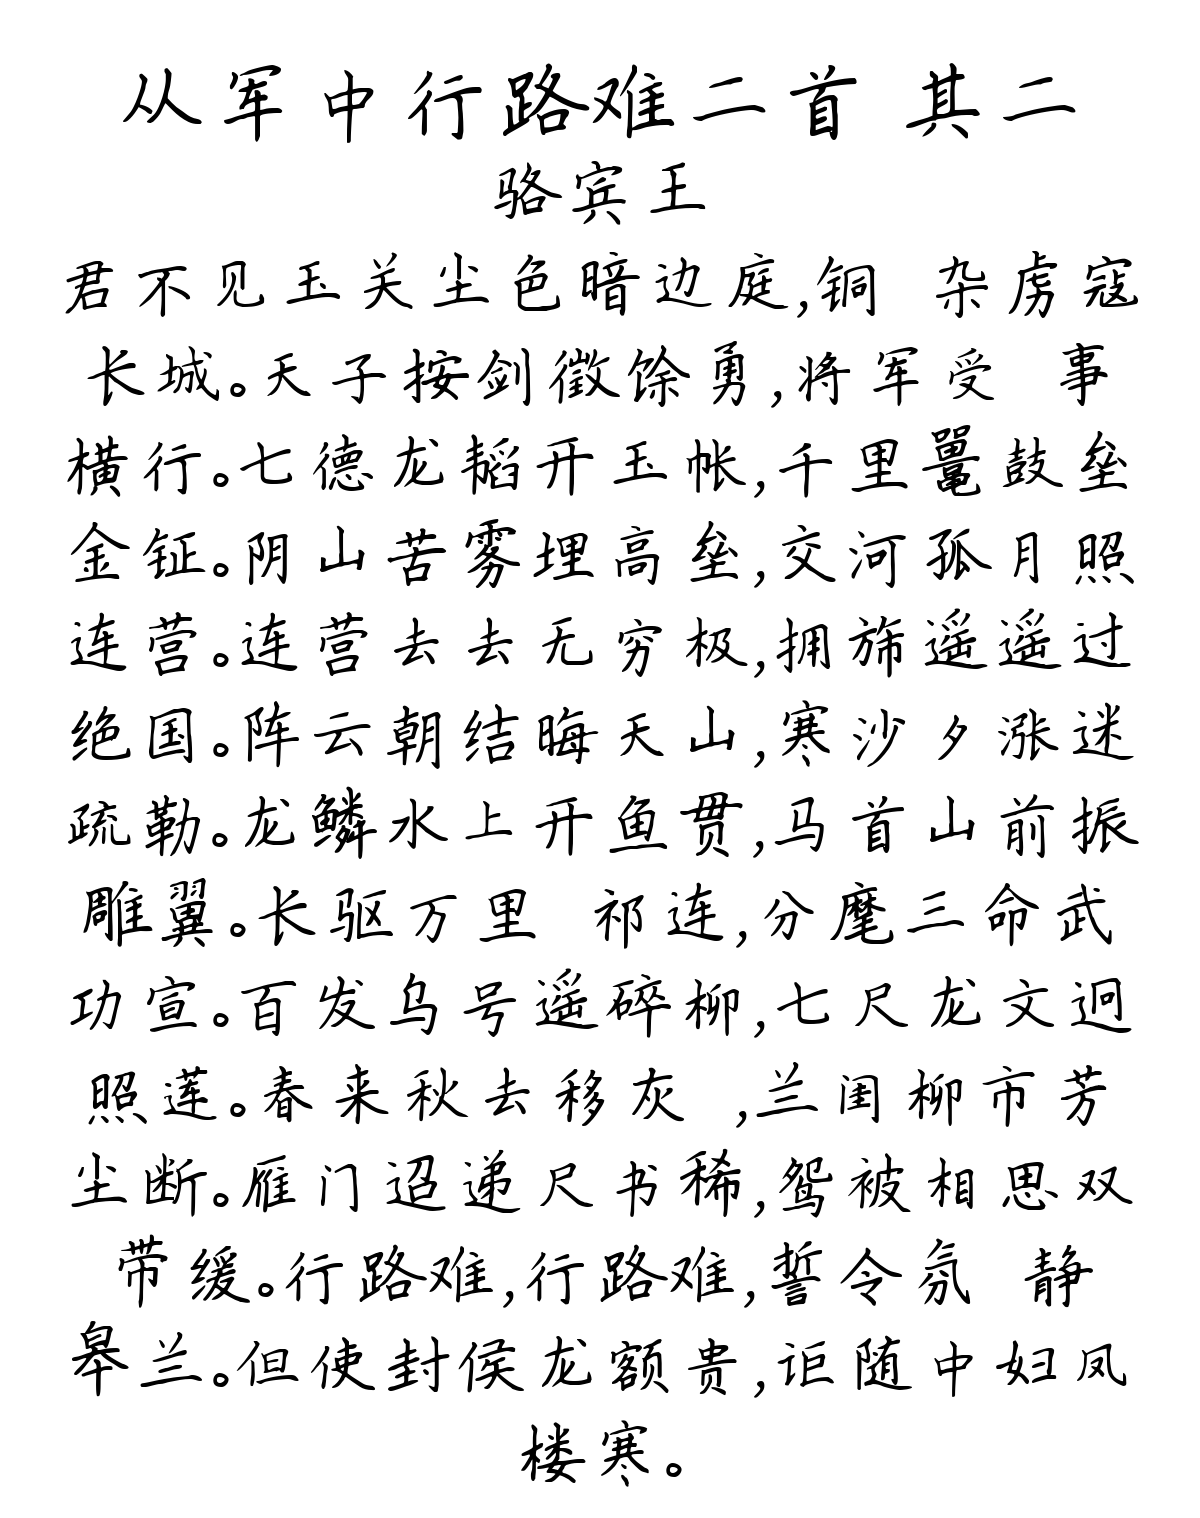 从军中行路难二首 其二
骆宾王
君不见玉关尘色暗边庭,铜 杂虏寇
长城。天子按剑徵馀勇,将军受 事
横行。七德龙韬开玉帐,千里鼍鼓垒
金钲。阴山苦雾埋高垒,交河孤月照
连营。连营去去无穷极,拥旆遥遥过
绝国。阵云朝结晦天山,寒沙夕涨迷
疏勒。龙鳞水上开鱼贯,马首山前振
雕翼。长驱万里 祁连,分麾三命武
功宣。百发乌号遥碎柳,七尺龙文迥
照莲。春来秋去移灰 ,兰闺柳市芳
尘断。雁门迢递尺书稀,鸳被相思双
带缓。行路难,行路难,誓令氛 静
皋兰。但使封侯龙额贵,讵随中妇凤
楼寒。